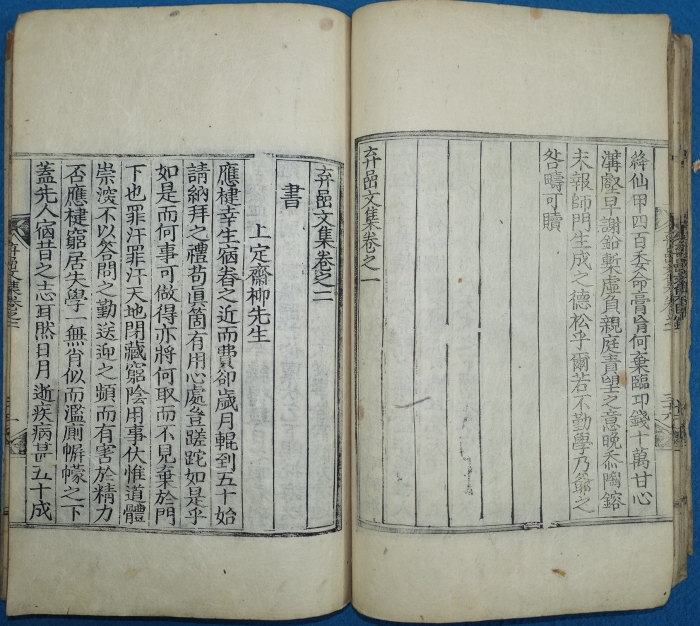 絳仙甲四百委命膏肓何棄臨卭錢十萬甘心
溝壑旦謝鉛槧虛負親庭責望之意晚忝陶鎔
未報師門生成之德松乎爾若不勤學乃爺之
咎疇可贖
弃嵒文集卷之一
弃嵒文集卷之二
書
上定齋柳先生
應楗幸生宿眷之近而費卻歲月輥到五十始
請納拜之禮苟眞箇有用心處豈蹉跎如是乎
如是而何事可做得亦將何取而不見棄於門
下也罪汗罪汗天地閉藏窮陰用事伏惟道體
崇深不以答問之勤送迎之頻而有害於精力
否應楗窮居失學一無肖似而濫廁帡幪之下
蓋先人宿昔之志耳然日月逝疾病甚五十成